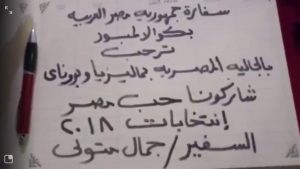 سفارة جمهورية مصر العربية
بكوالالمبور
ترحب
بالجالية المصرية بماليزيا وبروناي
شاركونا حب مصر
إنتخابات ٢٠١٨
السفير / جمال متولى